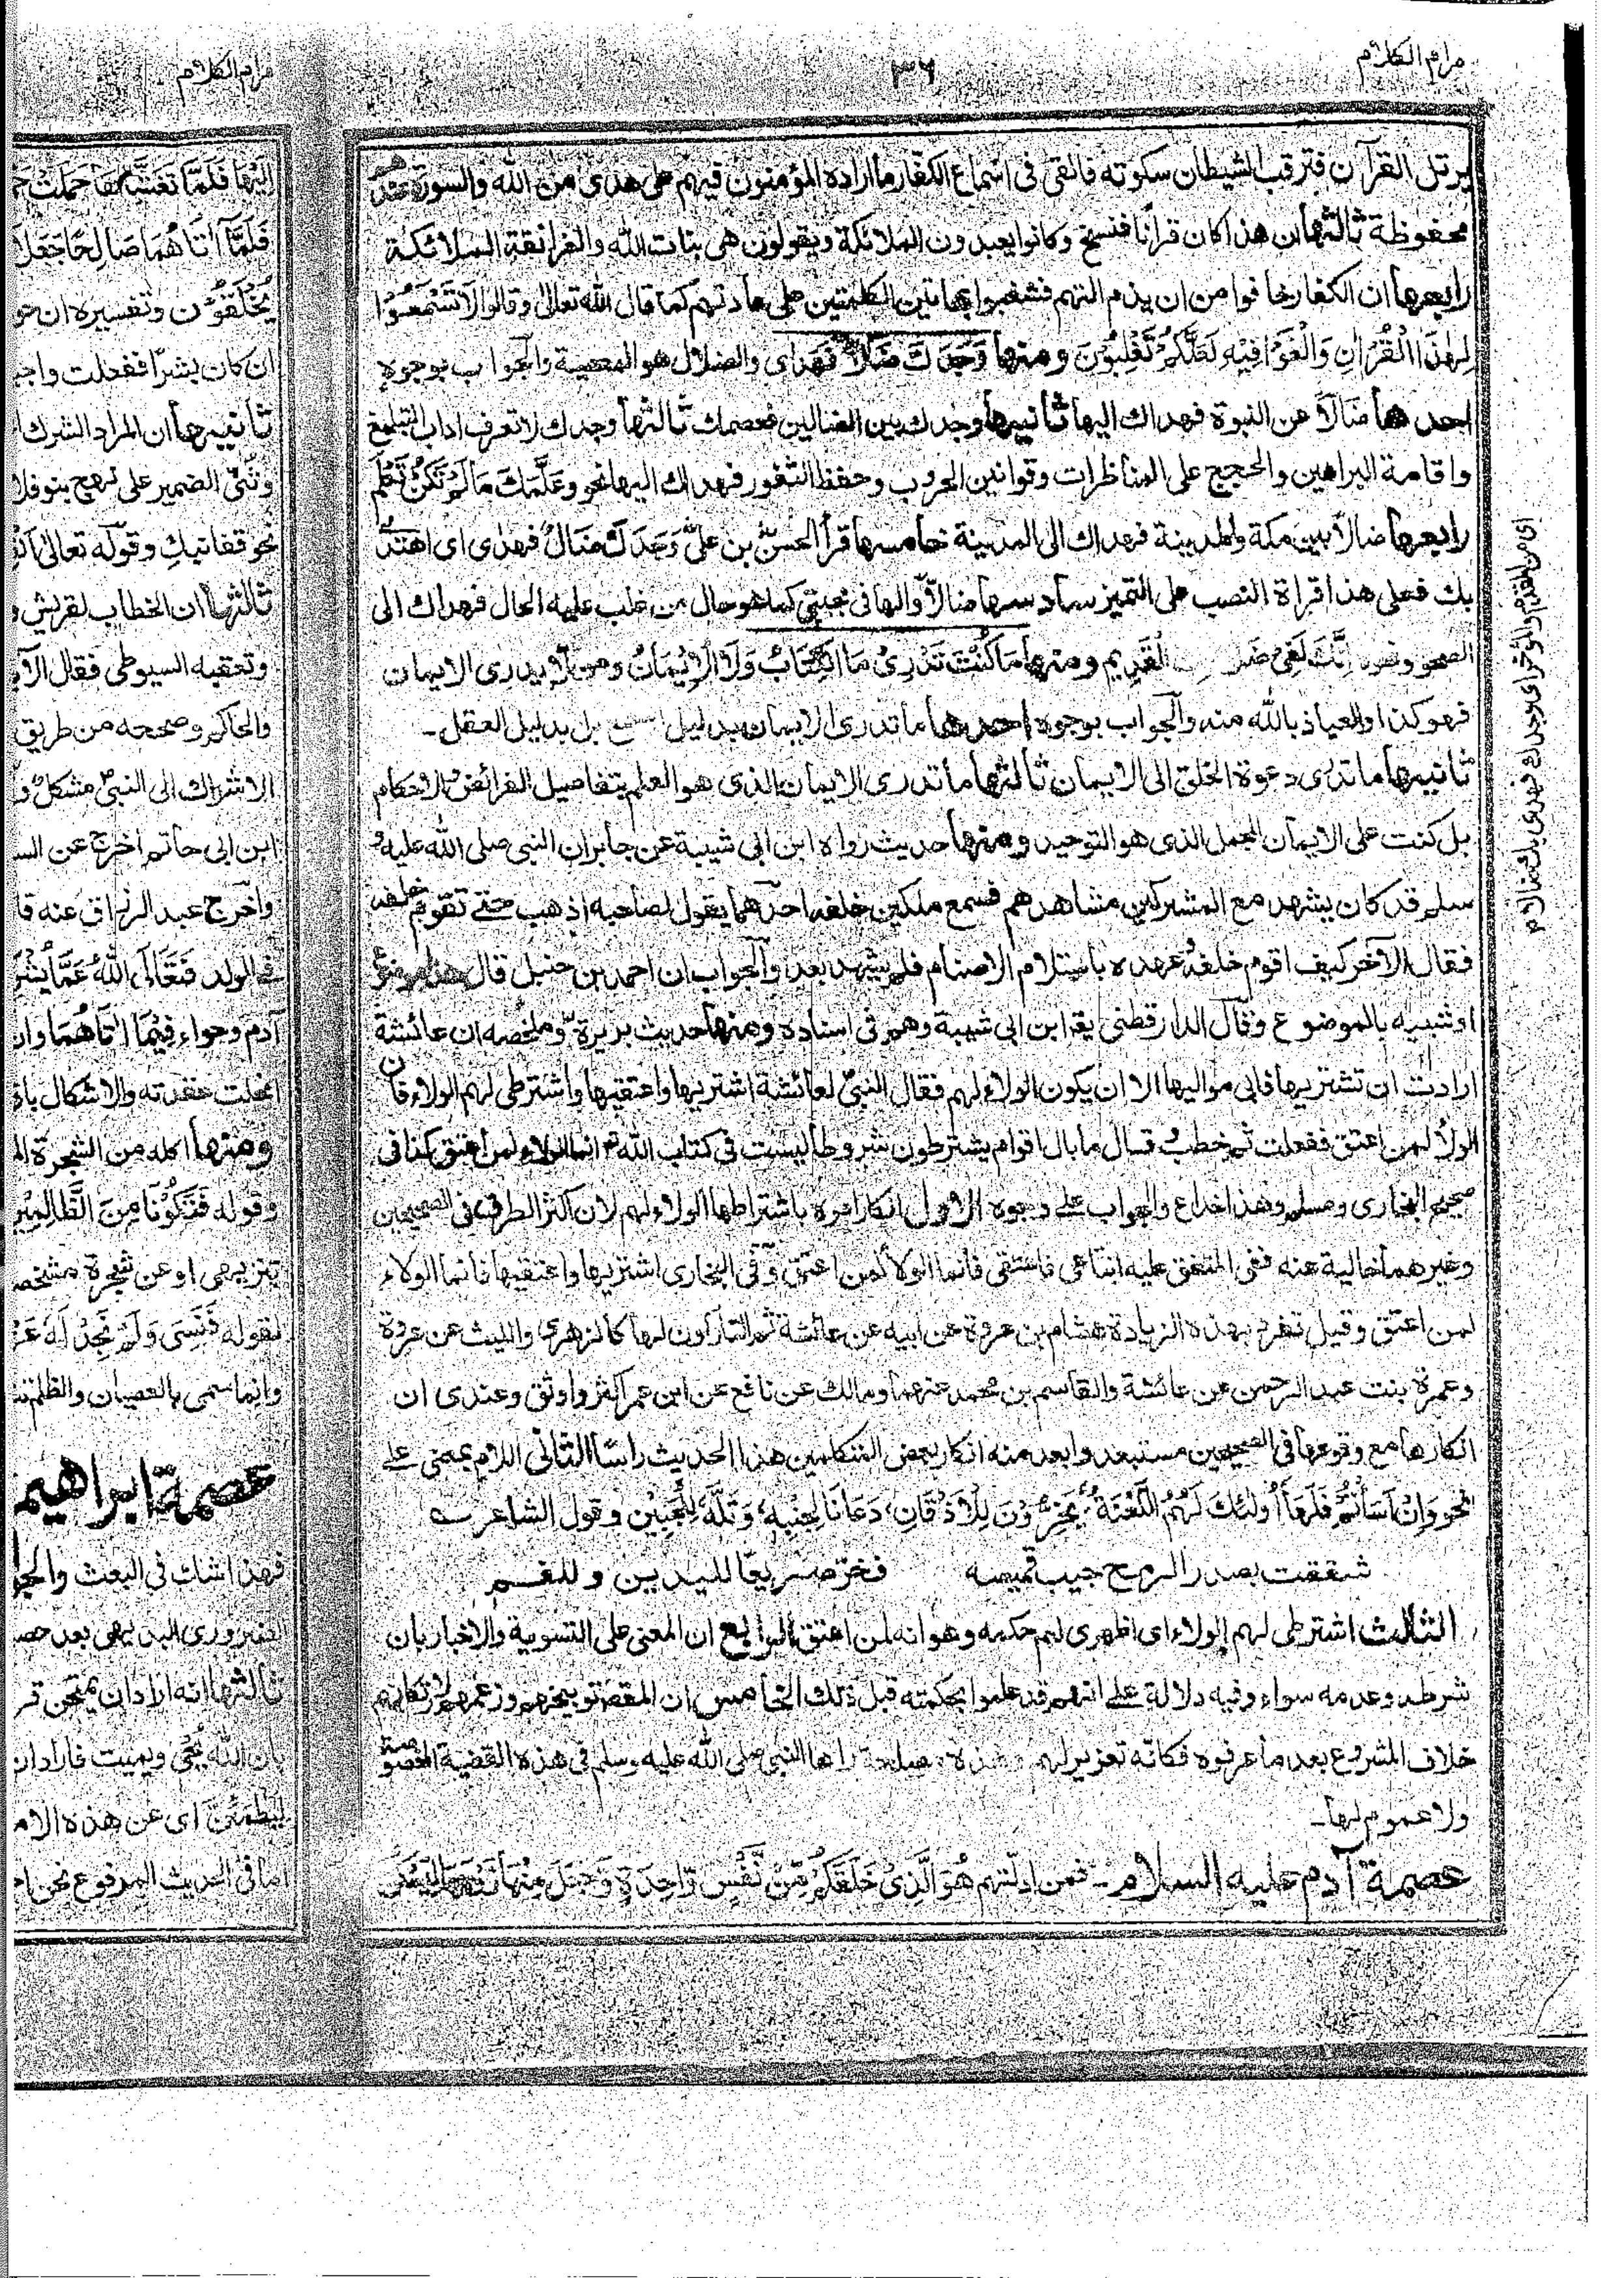 مرام الكلام
٣٦
يرتل القرآن فترقب الشيطان سكوته فالقى فى اسماع الكفار ما اراده المؤمنون فيهم على هدى من الله والسورة عندهم
محفوظة ثالثها ان هذا كان قرآنا فنسخ وكانوا يعبدون الملائكة ويقولون هى بنات الله والغرانقة الملائكة
رابعها ان الكفار خافوا من ان يذم الهتهم فشغبوا بهاتين الكلمتين على عادتهم كما قال الله تعالى وقالوا لَا تَسْمَعُوْا
لِهٰذَا الْقُرْاٰنِ وَالْغَوْا فِيْهِ لَعَلَّكُمْ تَغْلِبُوْنَ ومنها وَوَجَدَكَ ضَالًّا فَهَدٰى والضلال هو المعصية والجواب بوجوه
احدها ضالا عن النبوة فهداك اليها ثانيها وجدك بين الضالين فعصمك ثالثها وجدك لا تعرف اداب التبليغ
واقامة البراهين والحجج على المناظرات وقوانين الحروب وحفظ الثغور فهداك اليها نحو وَعَلَّمَكَ مَا لَمْ تَكُنْ تَعْلَمُ
رابعها ضالا بين مكة والمدينة فهداك الى المدينة خامسها قرأ الحسن بن على وَوَجَدَكَ ضَالٌّ فهدى اى اهتدى
بك فعلى هذا قراة النصب على التميز سادسها ضالا والها فى محبتى كما هو حال من غلب عليه الحال فهداك الى
الصحو ونحوه اِنَّكَ لَفِىْ ضَلٰلِكَ الْقَدِيْمِ ومنها مَا كُنْتَ تَدْرِىْ مَا الْكِتَابُ وَلَا الْاِيْمَانُ ومن لا يدرى الايمان
فهو كذا والعياذ بالله منه والجواب بوجوه احدها ما تدرى الايمان بدليل السمع بل بدليل العقل۔
ثانيها ما تدرى دعوة الخلق الى الايمان ثالثها ما تدرى الايمان الذى هو العلم بتفاصيل الفرائض والاحكام
بل كنت على الايمان المجمل الذى هو التوحيد ومنها حديث رواه ابن ابى شيبة عن جابر ان النبى صلى الله عليه و
سلم قد كان يشهد مع المشركين مشاهدهم فسمع ملكين خلفه احدهما يقول لصاحبه اذهب حتى تقوم خلفه
فقال الآخر كيف اقوم خلفه وعهده باستلام الاصنام فلم يشهد بعد والجواب ان احمد بن حنبل قال هذا موضوع
او شبيه بالموضوع وقال الدارقطنى يقه ابن ابى شيبة وهم فى اسناده ومنها حديث بريرة وملخصه ان عائشة
ارادت ان تشتريها فابى مواليها الا ان يكون الولاء لهم فقال النبى لعائشة اشتريها واعتقيها واشترطى لهم الولاء فان
الولاء لمن اعتق ففعلت ثم خطب وقال ما بال اقوام يشترطون شروطا ليست فى كتاب الله انما الولاء لمن اعتق كذا فى
صحيح البخارى ومسلم وهذا خداع والجواب على وجوه الاول انكار امره باشتراطها الولاء لهم لان اكثر الطرق فى الصحيحين
وغيرهما خالية عنه ففى المتفق عليه ابتاعى فاعتقى فانما الولاء لمن اعتق وفى البخارى اشتريها واعتقيها فانما الولاء
لمن اعتق وقيل تفرد بهذه الزيادة هشام بن عروة عن ابيه عن عائشة ثم التاركون لها كالزهرى والليث عن عروة
وعمرة بنت عبد الرحمن عن عائشة والقاسم بن محمد عنهما ومالك عن نافع عن ابن عمر اكثر واوثق وعندى ان
انكارها مع وقوعها فى الصحيحين مستبعد وابعد منه انكار بعض المتكلمين هذا الحديث راسًا الثانى اللام بمعنى على
نحو وَاِنْ اَسَأْتُمْ فَلَهَا اُولٰئِكَ لَهُمُ اللَّعْنَةُ، يَخِرُّوْنَ لِلْاَذْقَانِ، دَعَانَا لِجَنْبِهٖ، وَتَلَّهٗ لِلْجَبِيْنِ وقول الشاعر
شققت بصدر الرمح جيب قميصه فخر صريعا لليدين وللفم
الثالث اشترطى لهم الولاء اى اظهرى لهم حكمه وهو انه لمن اعتق الرابع ان المعنى على التسوية والاخبار بان
شرطه وعدمه سواء وفيه دلالة على انهم قد علموا بحكمته قبل ذلك الخامس ان المقصد توبيخهم وزجرهم لارتكابهم
خلاف المشروع بعد ما عرفوه فكانه تعزير لهم وهذه مصلحة راها النبى صلى الله عليه وسلم فى هذه القضية المخصوصة
ولا عموم لها۔
عصمة آدم عليه السلام۔ فمن ادلتهم هُوَ الَّذِىْ خَلَقَكُمْ مِّنْ نَّفْسٍ وَّاحِدَةٍ وَّجَعَلَ مِنْهَا زَوْجَهَا لِيَسْكُنَ
مرام الكلام
اِلَيْهَا فَلَمَّا تَغَشّٰىهَا حَمَلَتْ
فَلَمَّا اٰتَاهُمَا صَالِحًا جَعَلَا
يُخْلَقُوْنَ وتفسيره ان
ان كان بشرا ففعلت
ثانيها ان المراد الشرك
وثنى الضمير على نهج
نحو قفا نبك وقوله تعالى
ثالثها ان الخطاب لقريش
وتعقبه السيوطى فقال
والحاكم وصححه من طريق
الاشراك الى النبى مشكل
ابن ابى حاتم اخرج عن
واخرج عبد الرزاق عنه
فى الولد فَتَعَالَى اللّٰهُ عَمَّا
آدم وحواء فِيْمَا اٰتَاهُمَا وان
انحلت عقدته والاشكال
ومنها اكله من الشجرة
وقوله فَتَكُوْنَا مِنَ الظَّالِمِيْنَ
تنزيهى او عن شجرة مشخصة
لقوله فَنَسِىَ وَلَمْ نَجِدْ لَهٗ
وانما سمى بالعصيان والظلم
عصمة ابراهيم
فهذا شك فى البعث
الضرورى البديهى بعد
ثالثها انه اراد ان يمتحن
بان الله يحيى ويميت فاراد ان
ليطمئن اى عن هذه
اما فى الحديث المرفوع نحن